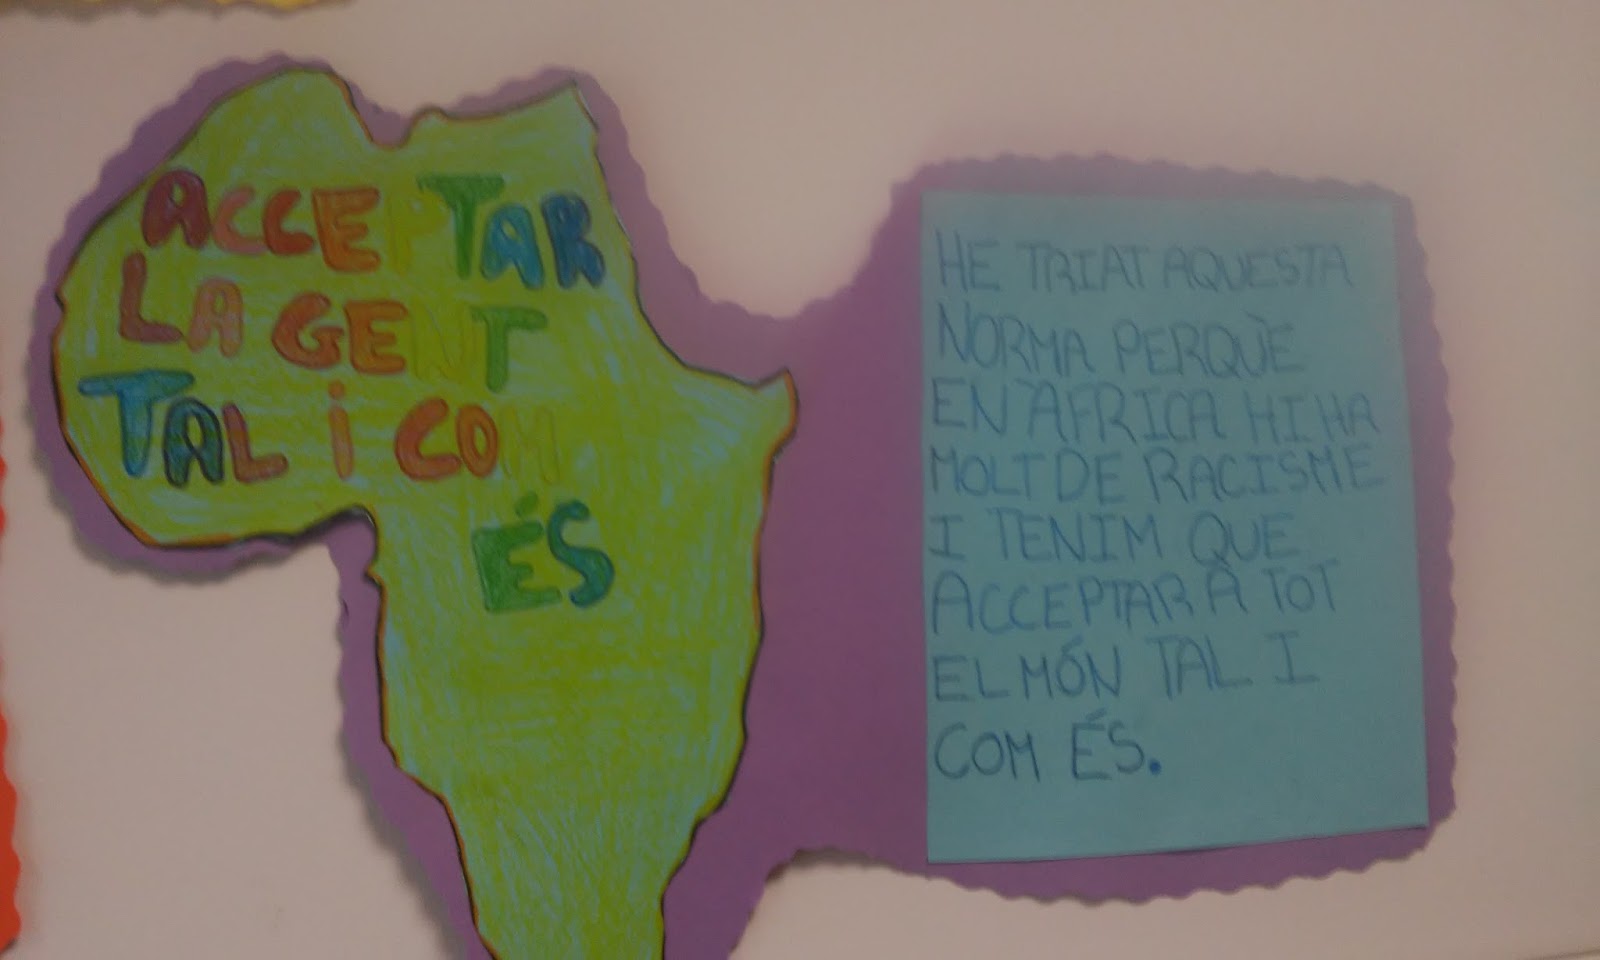 ACCEPTAR
LA GENT
TAL I COM
ÉS
HE TRIAT AQUESTA
NORMA PERQUÈ
EN ÀFRICA HI HA
MOLT DE RACISME
I TENIM QUE
ACCEPTAR A TOT
EL MÓN TAL I
COM ÉS.